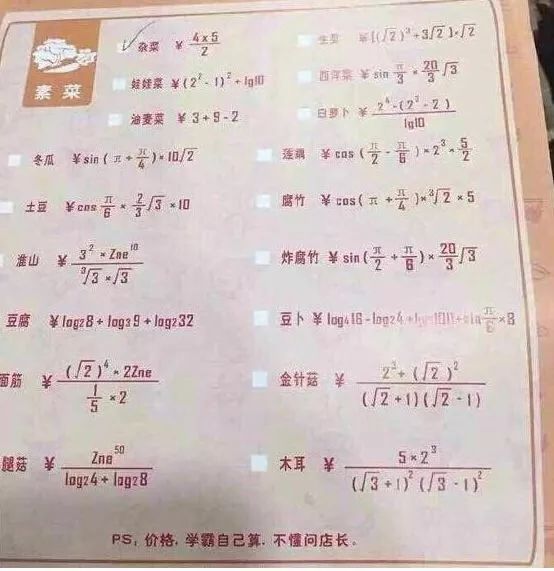 素菜
杂菜 ¥ 4×5/2
生菜 [(√2)³+3√2]×√2
娃娃菜 ¥(2²-1)²+lg10
西洋菜 ¥ sin π/3 × 20/3 √3
油麦菜 ¥ 3+9-2
白萝卜 ¥ 2⁴-(2³-2)/lg10
冬瓜 ¥sin(π+π/4)×10√2
莲藕 ¥cos(π/2-π/6)×2³×5/2
土豆 ¥cos π/6 × 2/3 √3 ×10
腐竹 ¥cos(π+π/4)×³√2×5
淮山 ¥ 3²×Zne¹⁰/³√3×√3
炸腐竹 ¥ sin(π/2+π/6)×20/3 √3
豆腐 ¥log28+log39+log232
豆卜 ¥log416-log24+ π/6×8
面筋 ¥ (√2)⁴×2Zne/1/5×2
金针菇 ¥ 2³+(√2)²/(√2+1)(√2-1)
腿菇 ¥ Zne⁵⁰/log24+log28
木耳 ¥ 5×2³/(√3+1)²(√3-1)²
PS，价格，学霸自己算．不懂问店长。